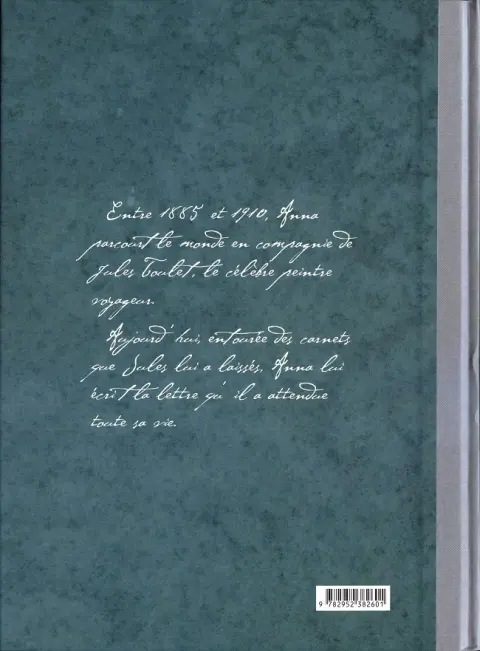 Entre 1885 et 1910, Anna
parcourt le monde en compagnie de
Jules Toulet, le célèbre peintre
voyageur.
Aujourd'hui, entourée des carnets
que Jules lui a laissés, Anna lui
écrit la lettre qu'il a attendue
toute sa vie.
9 782952 382601